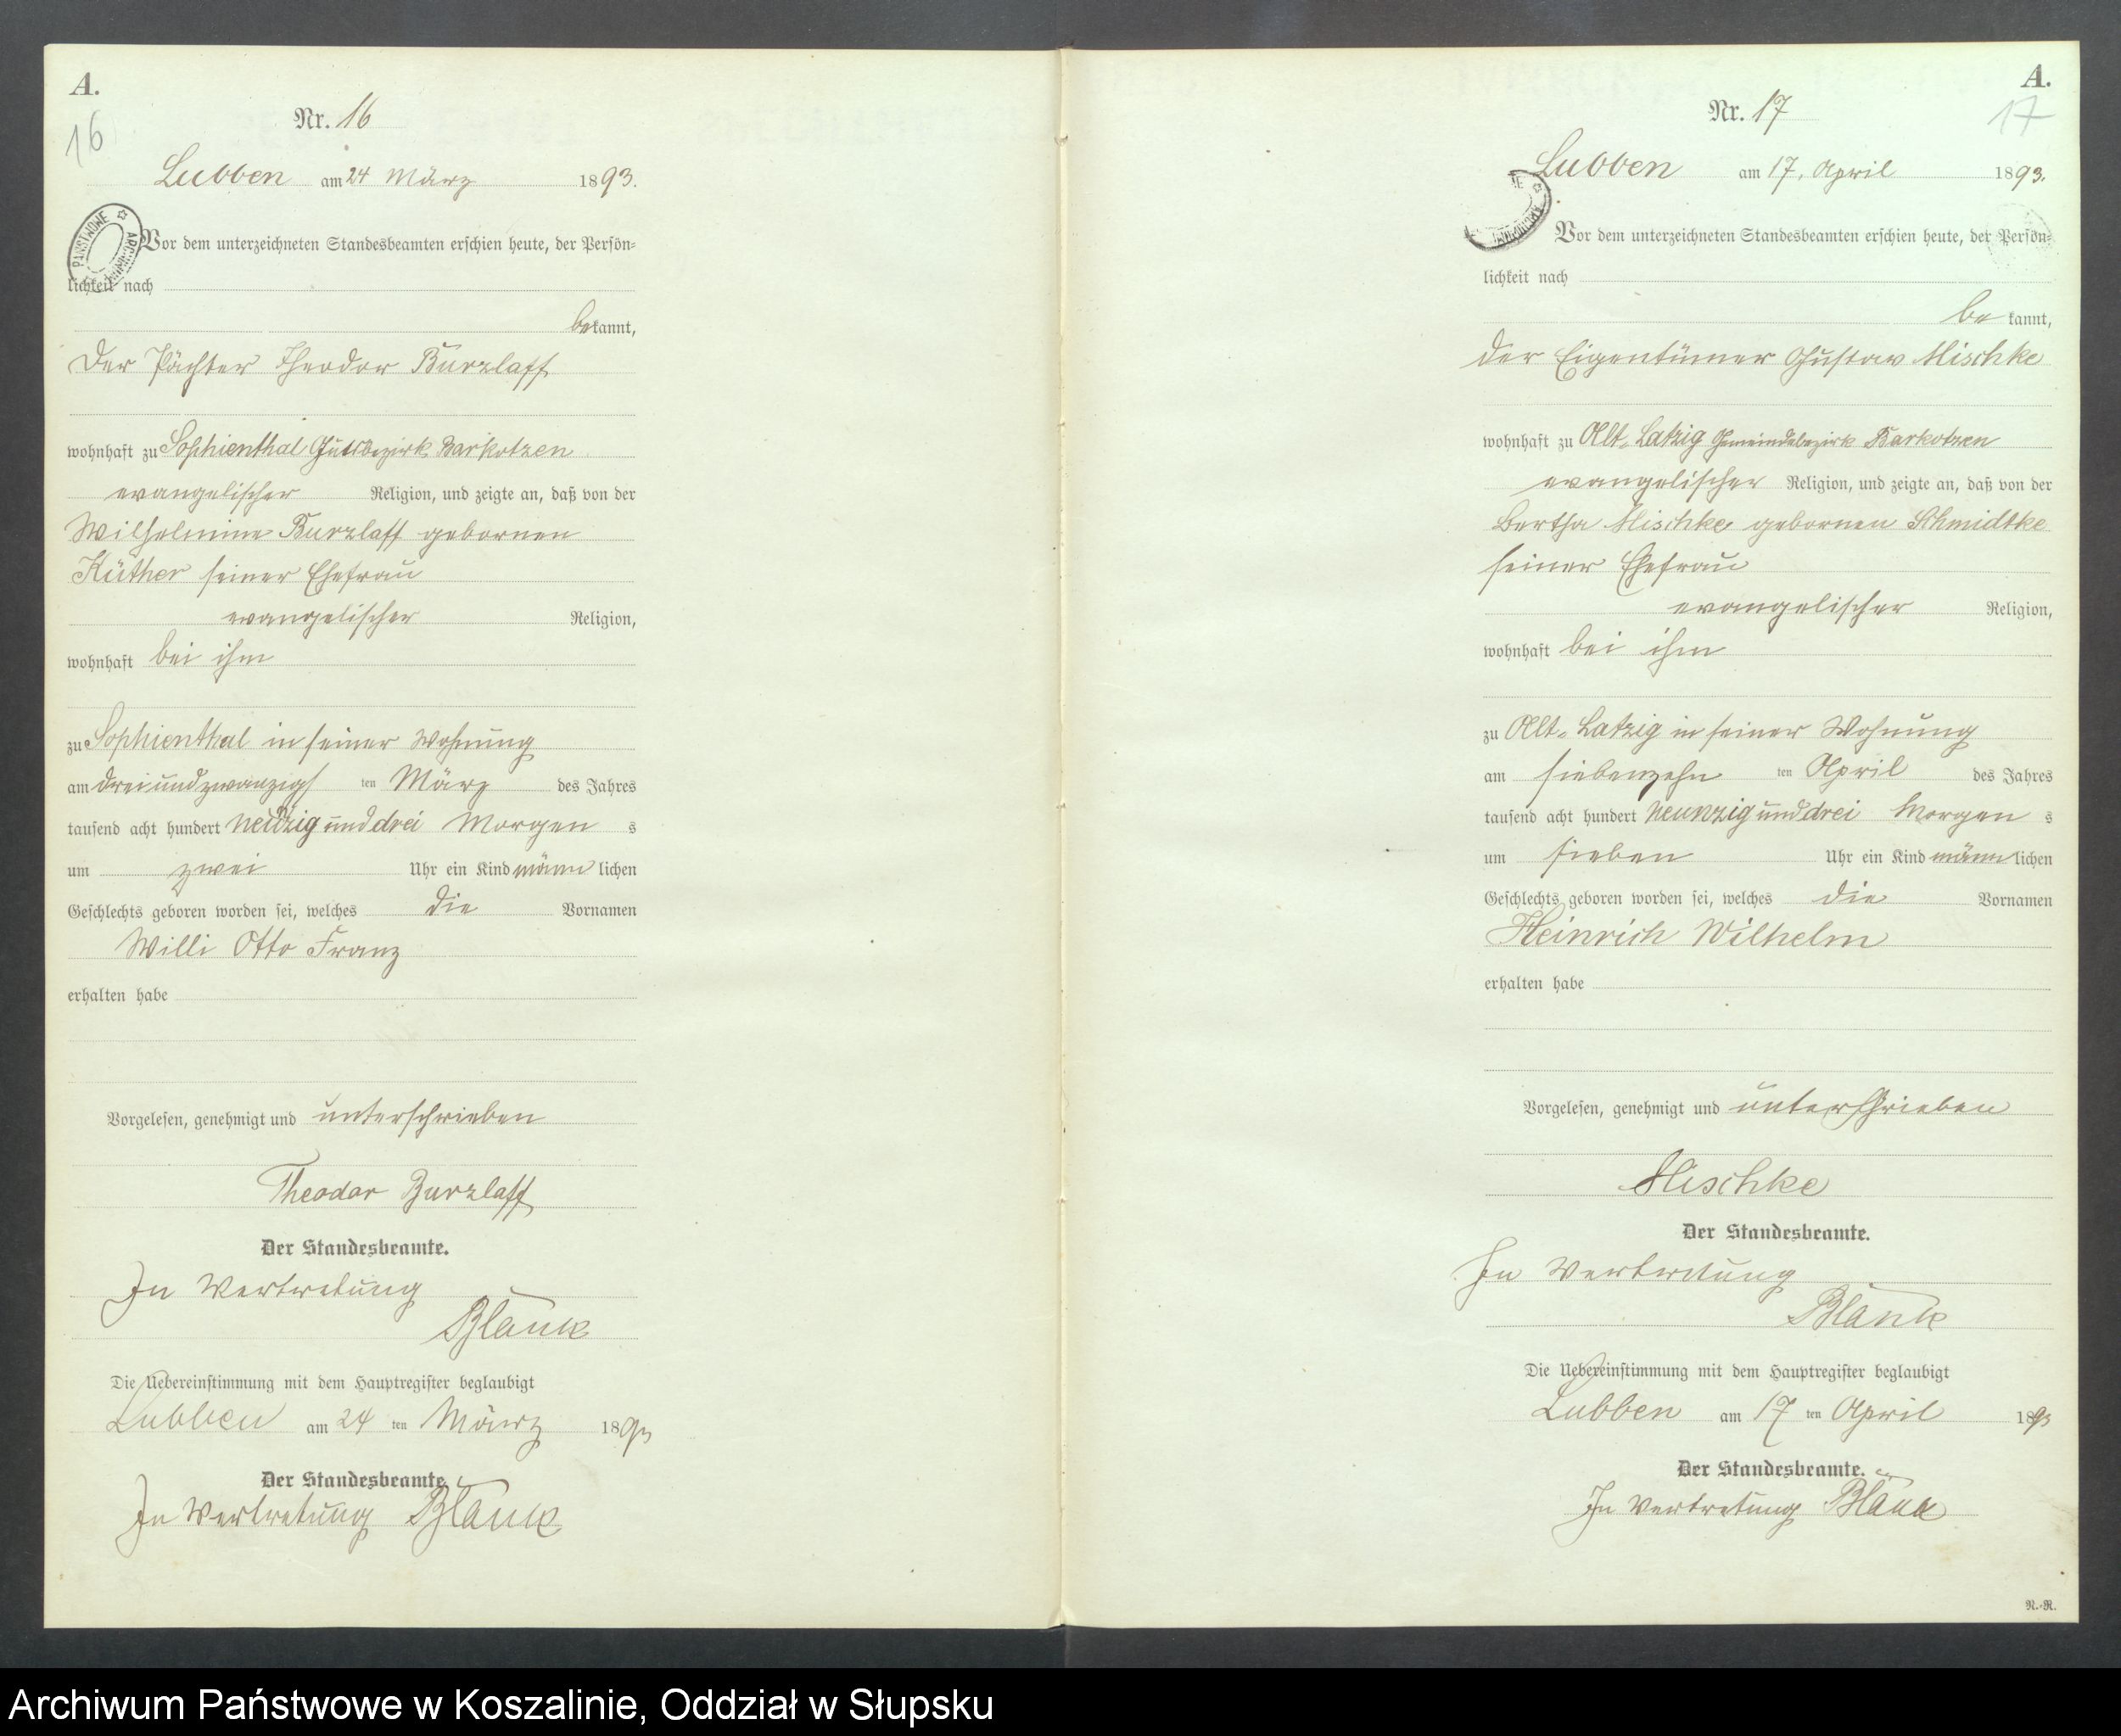 A.
16
Nr. 16
Lubben am 24 März 1893.
PAŃSTWOWE ☆ ARCHIWUM
Vor dem unterzeichneten Standesbeamten erschien heute, der Persön=
lichkeit nach
bekannt,
Der Pächter Theodor Burzlaff
wohnhaft zu Sophienthal Gutsbezirk Barkotzen
evangelischer Religion, und zeigte an, daß von der
Wilhelmine Burzlaff gebornen
Küther seiner Ehefrau
evangelischer Religion,
wohnhaft bei ihm
zu Sophienthal in seiner Wohnung
am dreiundzwanzigsten März des Jahres
tausend acht hundert neunzig und drei Morgens
um zwei Uhr ein Kind männlichen
Geschlechts geboren worden sei, welches die Vornamen
Willi Otto Franz
erhalten habe
Vorgelesen, genehmigt und unterschrieben
Theodor Burzlaff
Der Standesbeamte.
In Vertretung
Blank
Die Uebereinstimmung mit dem Hauptregister beglaubigt
Lubben am 24 ten März 1893
Der Standesbeamte.
In Vertretung Blank
A.
17
Nr. 17
Lubben am 17. April 1893.
Vor dem unterzeichneten Standesbeamten erschien heute, der Persön=
lichkeit nach
bekannt,
der Eigentümer Gustav Mischke
wohnhaft zu Alt-Latzig Gemeindebezirk Barkotzen
evangelischer Religion, und zeigte an, daß von der
Bertha Mischke gebornen Schmidtke
seiner Ehefrau
evangelischer Religion,
wohnhaft bei ihm
zu Alt-Latzig in seiner Wohnung
am siebenzehn ten April des Jahres
tausend acht hundert neunzig und drei Morgens
um sieben Uhr ein Kind männlichen
Geschlechts geboren worden sei, welches die Vornamen
Heinrich Wilhelm
erhalten habe
Vorgelesen, genehmigt und unterschrieben
Mischke
Der Standesbeamte.
In Vertretung
Blank
Die Uebereinstimmung mit dem Hauptregister beglaubigt
Lubben am 17 ten April 1893
Der Standesbeamte.
In Vertretung Blank
N.=R.
Archiwum Państwowe w Koszalinie, Oddział w Słupsku